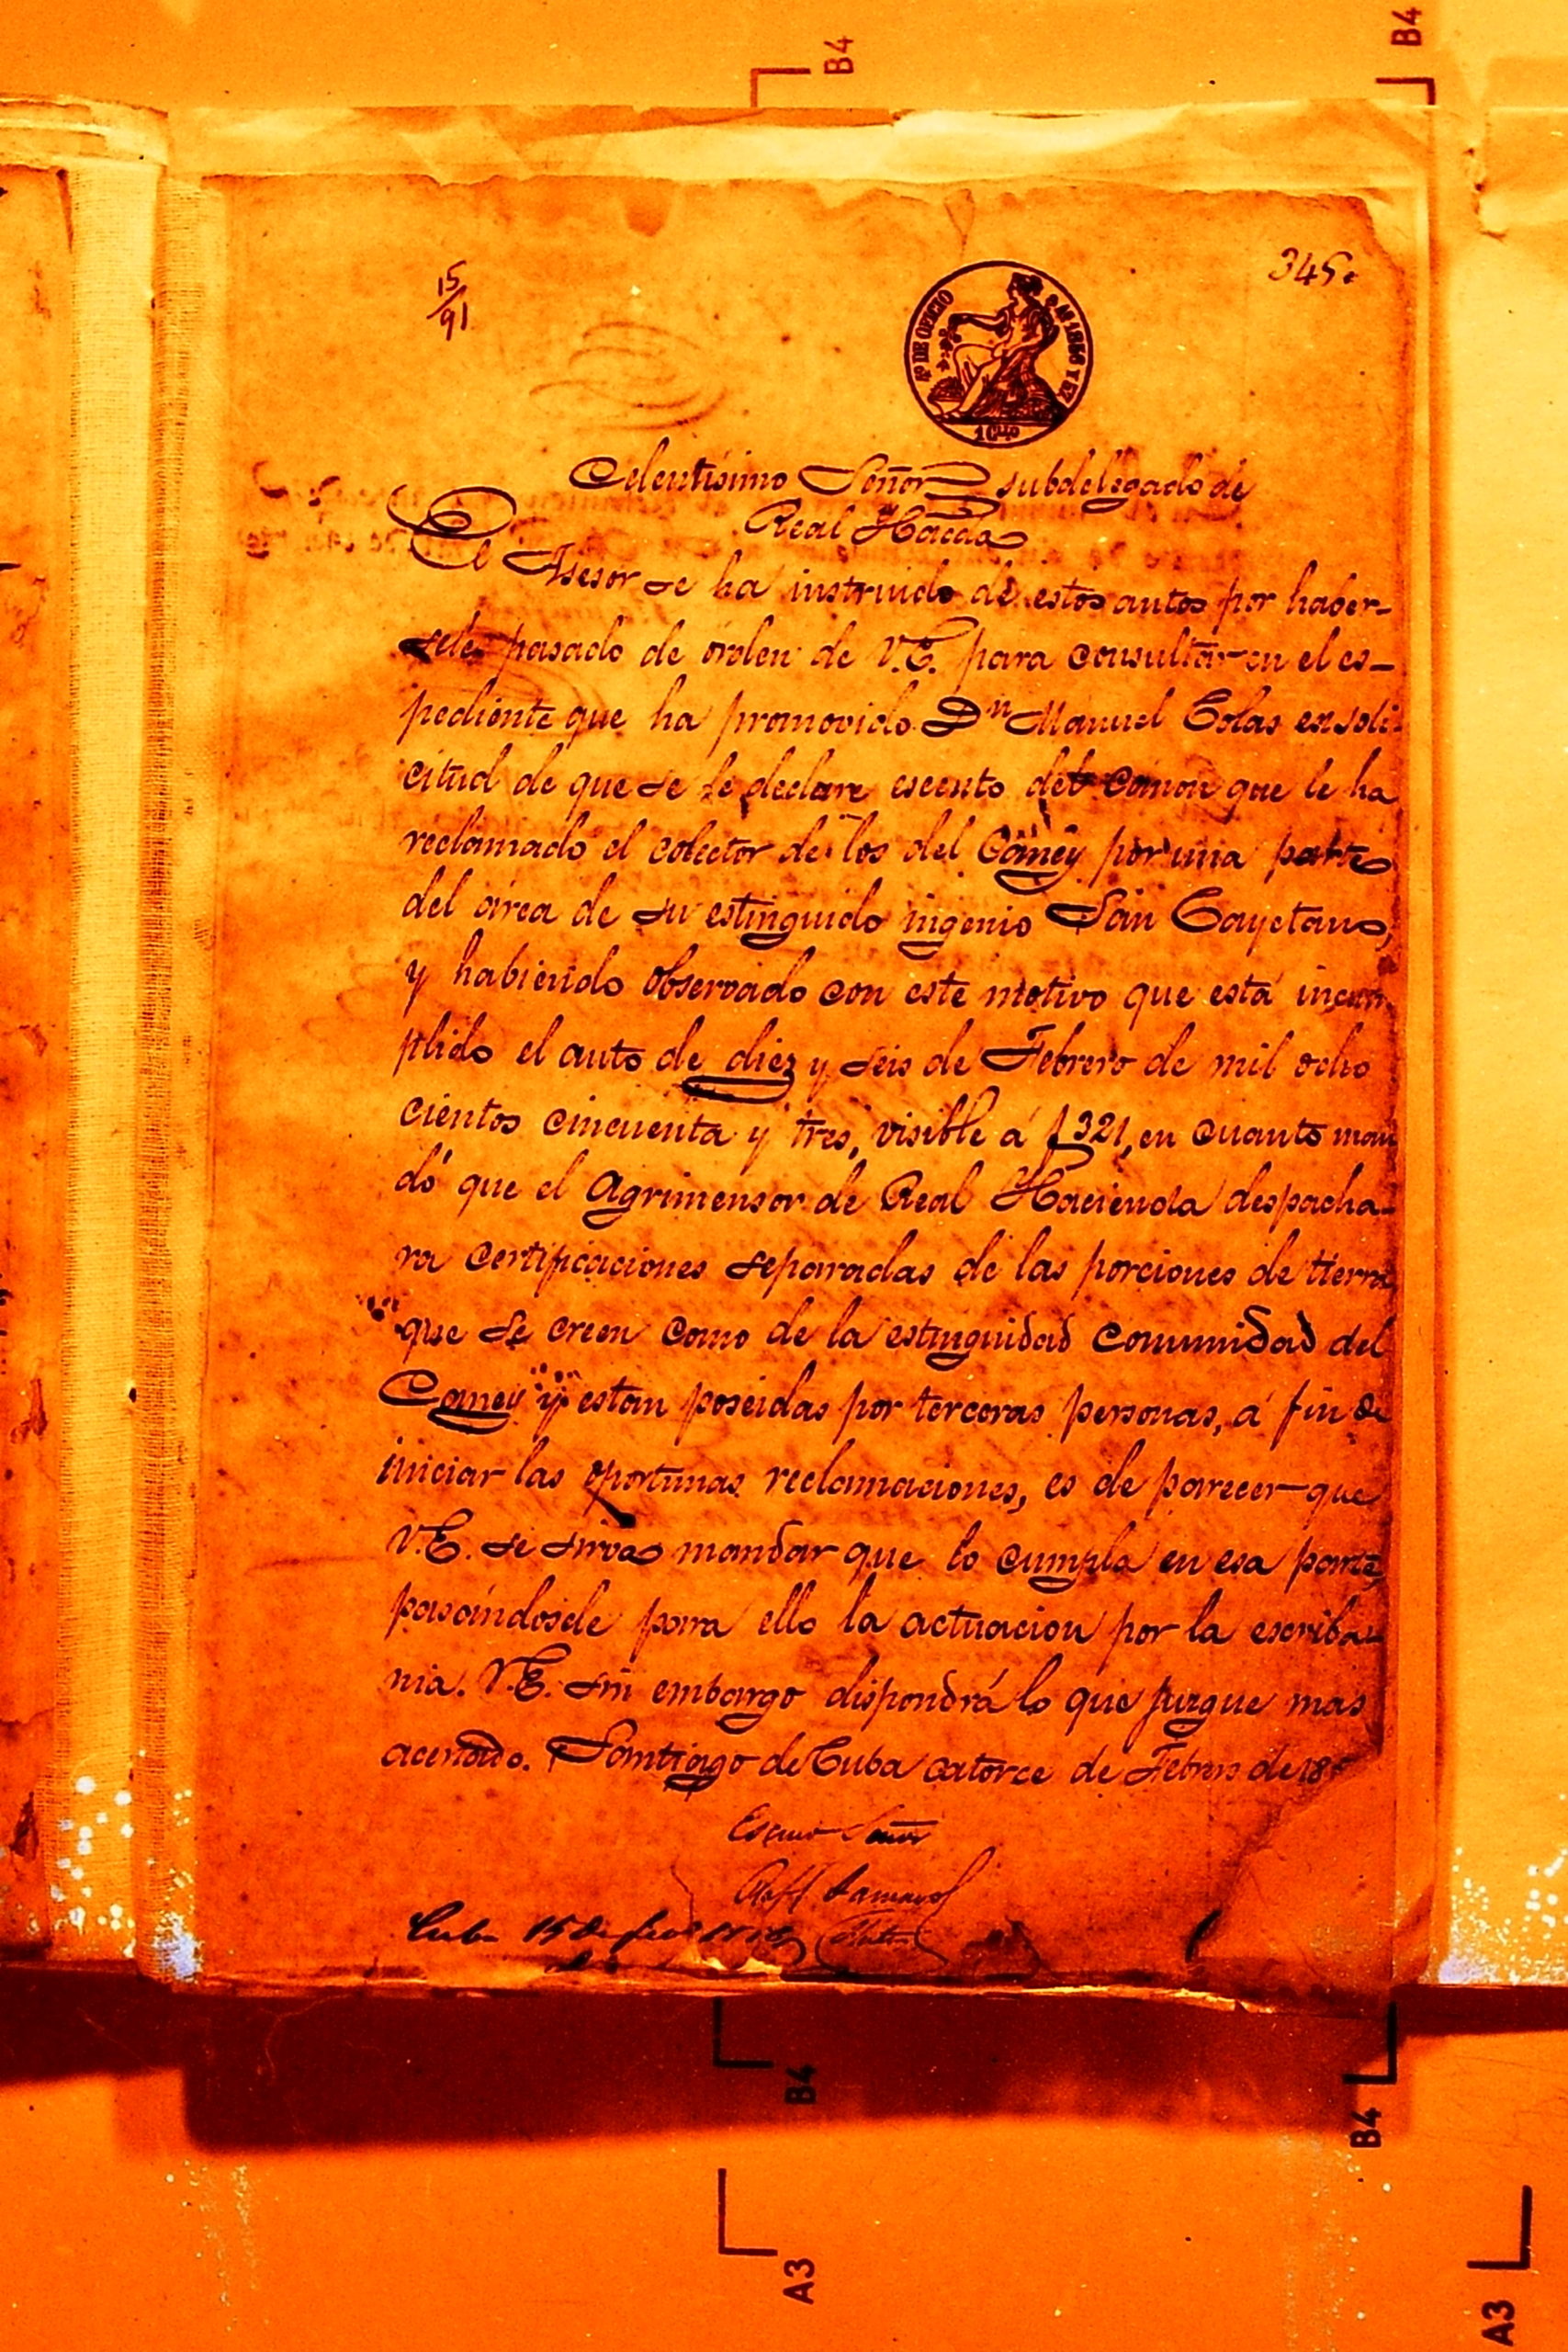 B4
B4
15/91
345.
4º DE OFICIO
1856 Y 57
1640
Celentísimo Señor subdelegado de
Real Hacda
El Asesor se ha instruido de estos autos por haber-
sele pasado de órden de V.E. para consultar en el es-
pediente que ha promovido Dn Manuel Colas en soli-
citud de que se le declare escento del Cánon que le ha
reclamado el colector de los del Caney por una parte
del área de su estinguido ingenio San Cayetano,
y habiendo observado con este motivo que está incum
plido el auto de diez y seis de Febrero de mil ocho
cientos cincuenta y tres, visible á f 321, en cuanto man
dó que el Agrimensor de Real Hacienda despacha-
ra certificaciones separadas de las porciones de tierra
que se creen como de la estinguidad comunidad del
Caney y estan poseidas por terceras personas, á fin de
iniciar las oportunas reclamaciones, es de parecer que
V.E. se sirva mandar que lo cumpla en esa parte,
pasándosele para ello la actuacion por la escriba-
nia. V.E. sin embargo dispondrá lo que juzgue mas
acertado. Santiago de Cuba catorce de Febrero de 18
Escmo Señor
Cuba 15 de
B4
B4
A3
A3